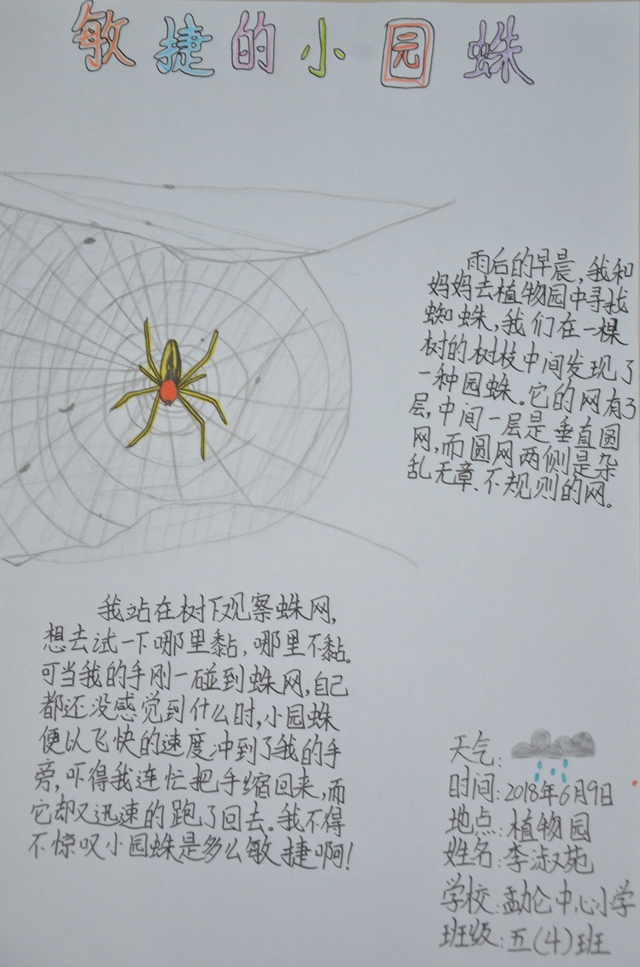 敏捷的小园蛛
雨后的早晨,我和
妈妈去植物园中寻找
蜘蛛,我们在一棵
树的树枝中间发现了
一种园蛛。它的网有3
层,中间一层是垂直圆
网,而圆网两侧是杂
乱无章、不规则的网。
我站在树下观察蛛网,
想去试一下哪里黏,哪里不黏。
可当我的手刚一碰到蛛网,自己
都还没感觉到什么时,小园蛛
便以飞快的速度冲到了我的手
旁,吓得我连忙把手缩回来,而
它却又迅速的跑了回去。我不得
不惊叹小园蛛是多么敏捷啊!
天气:
时间:2018年6月9日
地点:植物园
姓名:李淑苑
学校:勐仑中心小学
班级:五(4)班